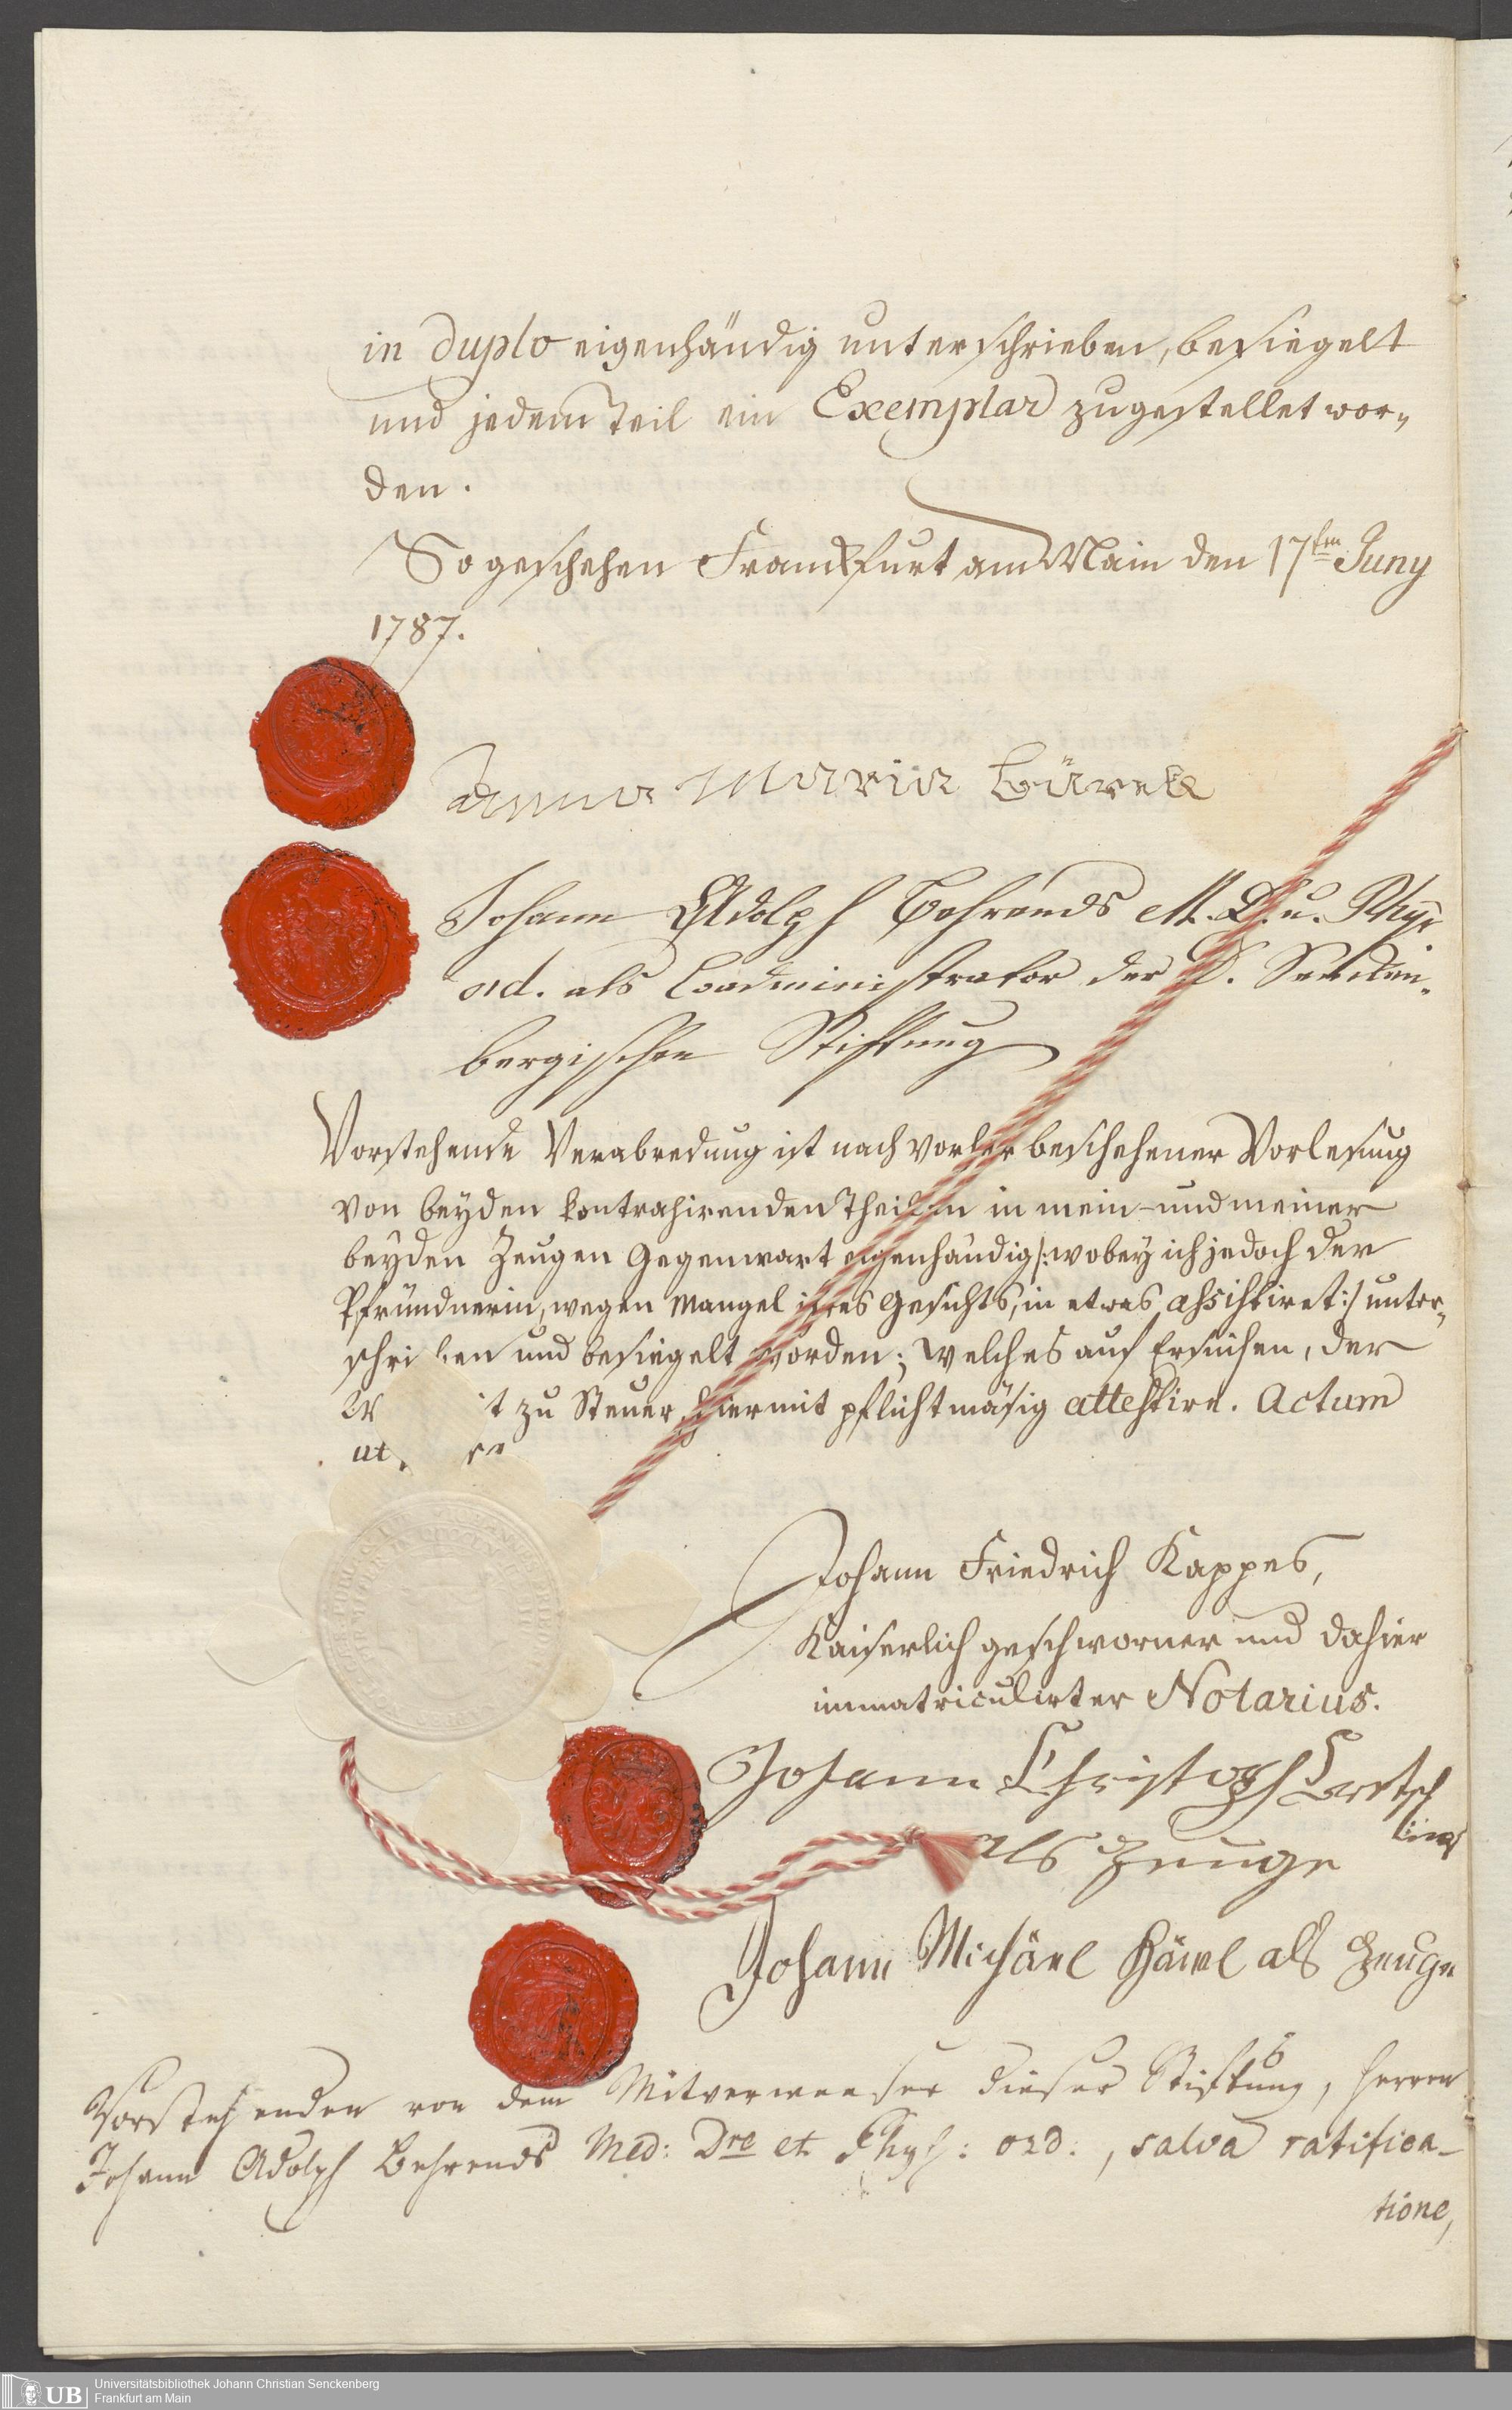 in duplo eigenhändig unterschrieben, besiegelt
und jedem Teil ein Exemplar zugestellet wor„
den.
So geschehen Franckfurt am Main den 17ten Juny
1787.
Anna Maria
Johann Adolph Behrends M. D. u. Phys
ord. als Coadministrator der D. Sencken„
bergischen Stiftung
Vorstehende Verabredung ist nach vorher beschehener Vorlesung
von beyden kontrahirenden Theilen in mein- und meiner
beyden Zeugen Gegenwart eigenhändig /: wobey ich jedoch der
Pfründnerin, wegen Mangel ihres Gesichts, in etwas assistiret :/ unter„
schrieben und besiegelt worden; welches auf Ersuchen, der
W it zu Steuer, hiermit pflichtmäsig attestire. Actum
ut
Johann Friedrich Kappes,
Kaiserlich geschworner und dahier
immatriculirter Notarius.
Johann Christoph
als Zeuge
Johann Michäel als Zeuge
Vorstehenden von dem Mitverweeser dieser Stiftung, Herren
Johann Adolph Behrends Med: Dre et Phys: ord:, salva ratifica-
tione,
UB
Universitätsbibliothek Johann Christian Senckenberg
Frankfurt am Main